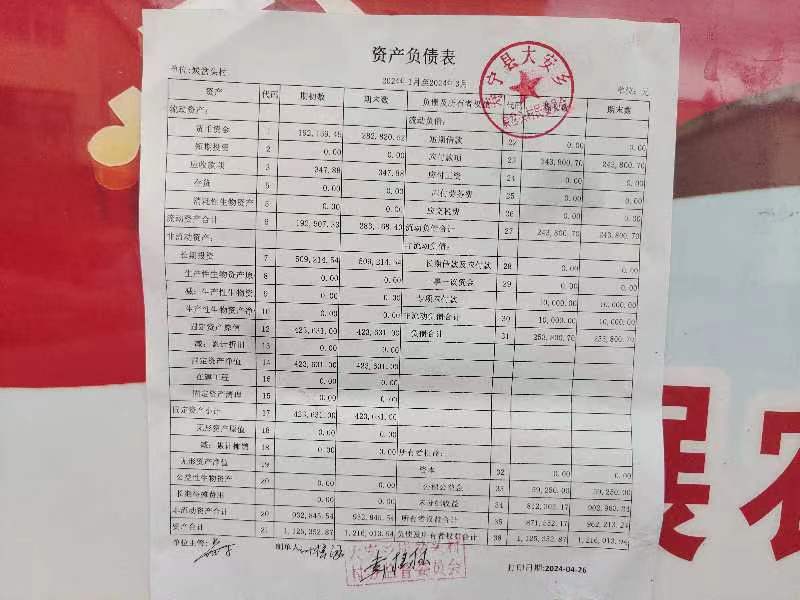 资产负债表
2024年1月至2024年3月 单位：元
资产 代码 期初数 期末数 负债及所有者权益 代码 期末数
流动资产： 流动负债：
货币资金 1 短期借款 22 0.00 0.00
短期投资 2 0.00 0.00 应付款项 23 243,800.70 243,800.70
应收款项 3 347.98 347.98 应付工资 24 0.00 0.00
存货 0.00 0.00 应付劳务费 25 0.00 0.00
消耗性生物资产 0.00 0.00 应交税费 26 0.00 0.00
流动资产合计 6 流动负债合计 27 243,800.70 243,800.70
非流动资产： 非流动负债：
长期投资 7 509,214.54 509,214.54 长期借款及应付款 28 0.00 0.00
生产性生物资产原 8 0.00 0.00 一事一议资金 29 0.00 0.00
减：生产性生物资 9 0.00 0.00 专项应付款 10,000.00 10,000.00
生产性生物资产净 10 0.00 0.00 非流动负债合计 30 10,000.00 10,000.00
固定资产原值 12 423,631.00 423,631.00 负债合计 31 253,800.70 253,800.70
减：累计折旧 13 0.00 0.00
固定资产净值 14 423,631.00 423,631.00
在建工程 16 0.00 0.00
固定资产清理 15 0.00 0.00
固定资产小计 17 423,631.00 423,631.00
无形资产原值 18 0.00 0.00
减：累计摊销 0.00 0.00 所有者权益：
无形资产净值 19 资本 32 0.00 0.00
公益性生物资产 20 0.00 0.00 公积公益金 33 59,250.00 59,250.00
长期待摊费用 0.00 0.00 未分配收益 34 812,302.17 902,963.24
非流动资产合计 20 932,845.54 932,845.54 所有者权益合计 35 871,552.17 962,213.24
资产合计 21 1,125,352.87 1,216,013.94 负债及所有者权益合计 36 1,125,352.87 1,216,013.94
单位主管： 制单人
打印日期：2024-04-26
宁县大安乡